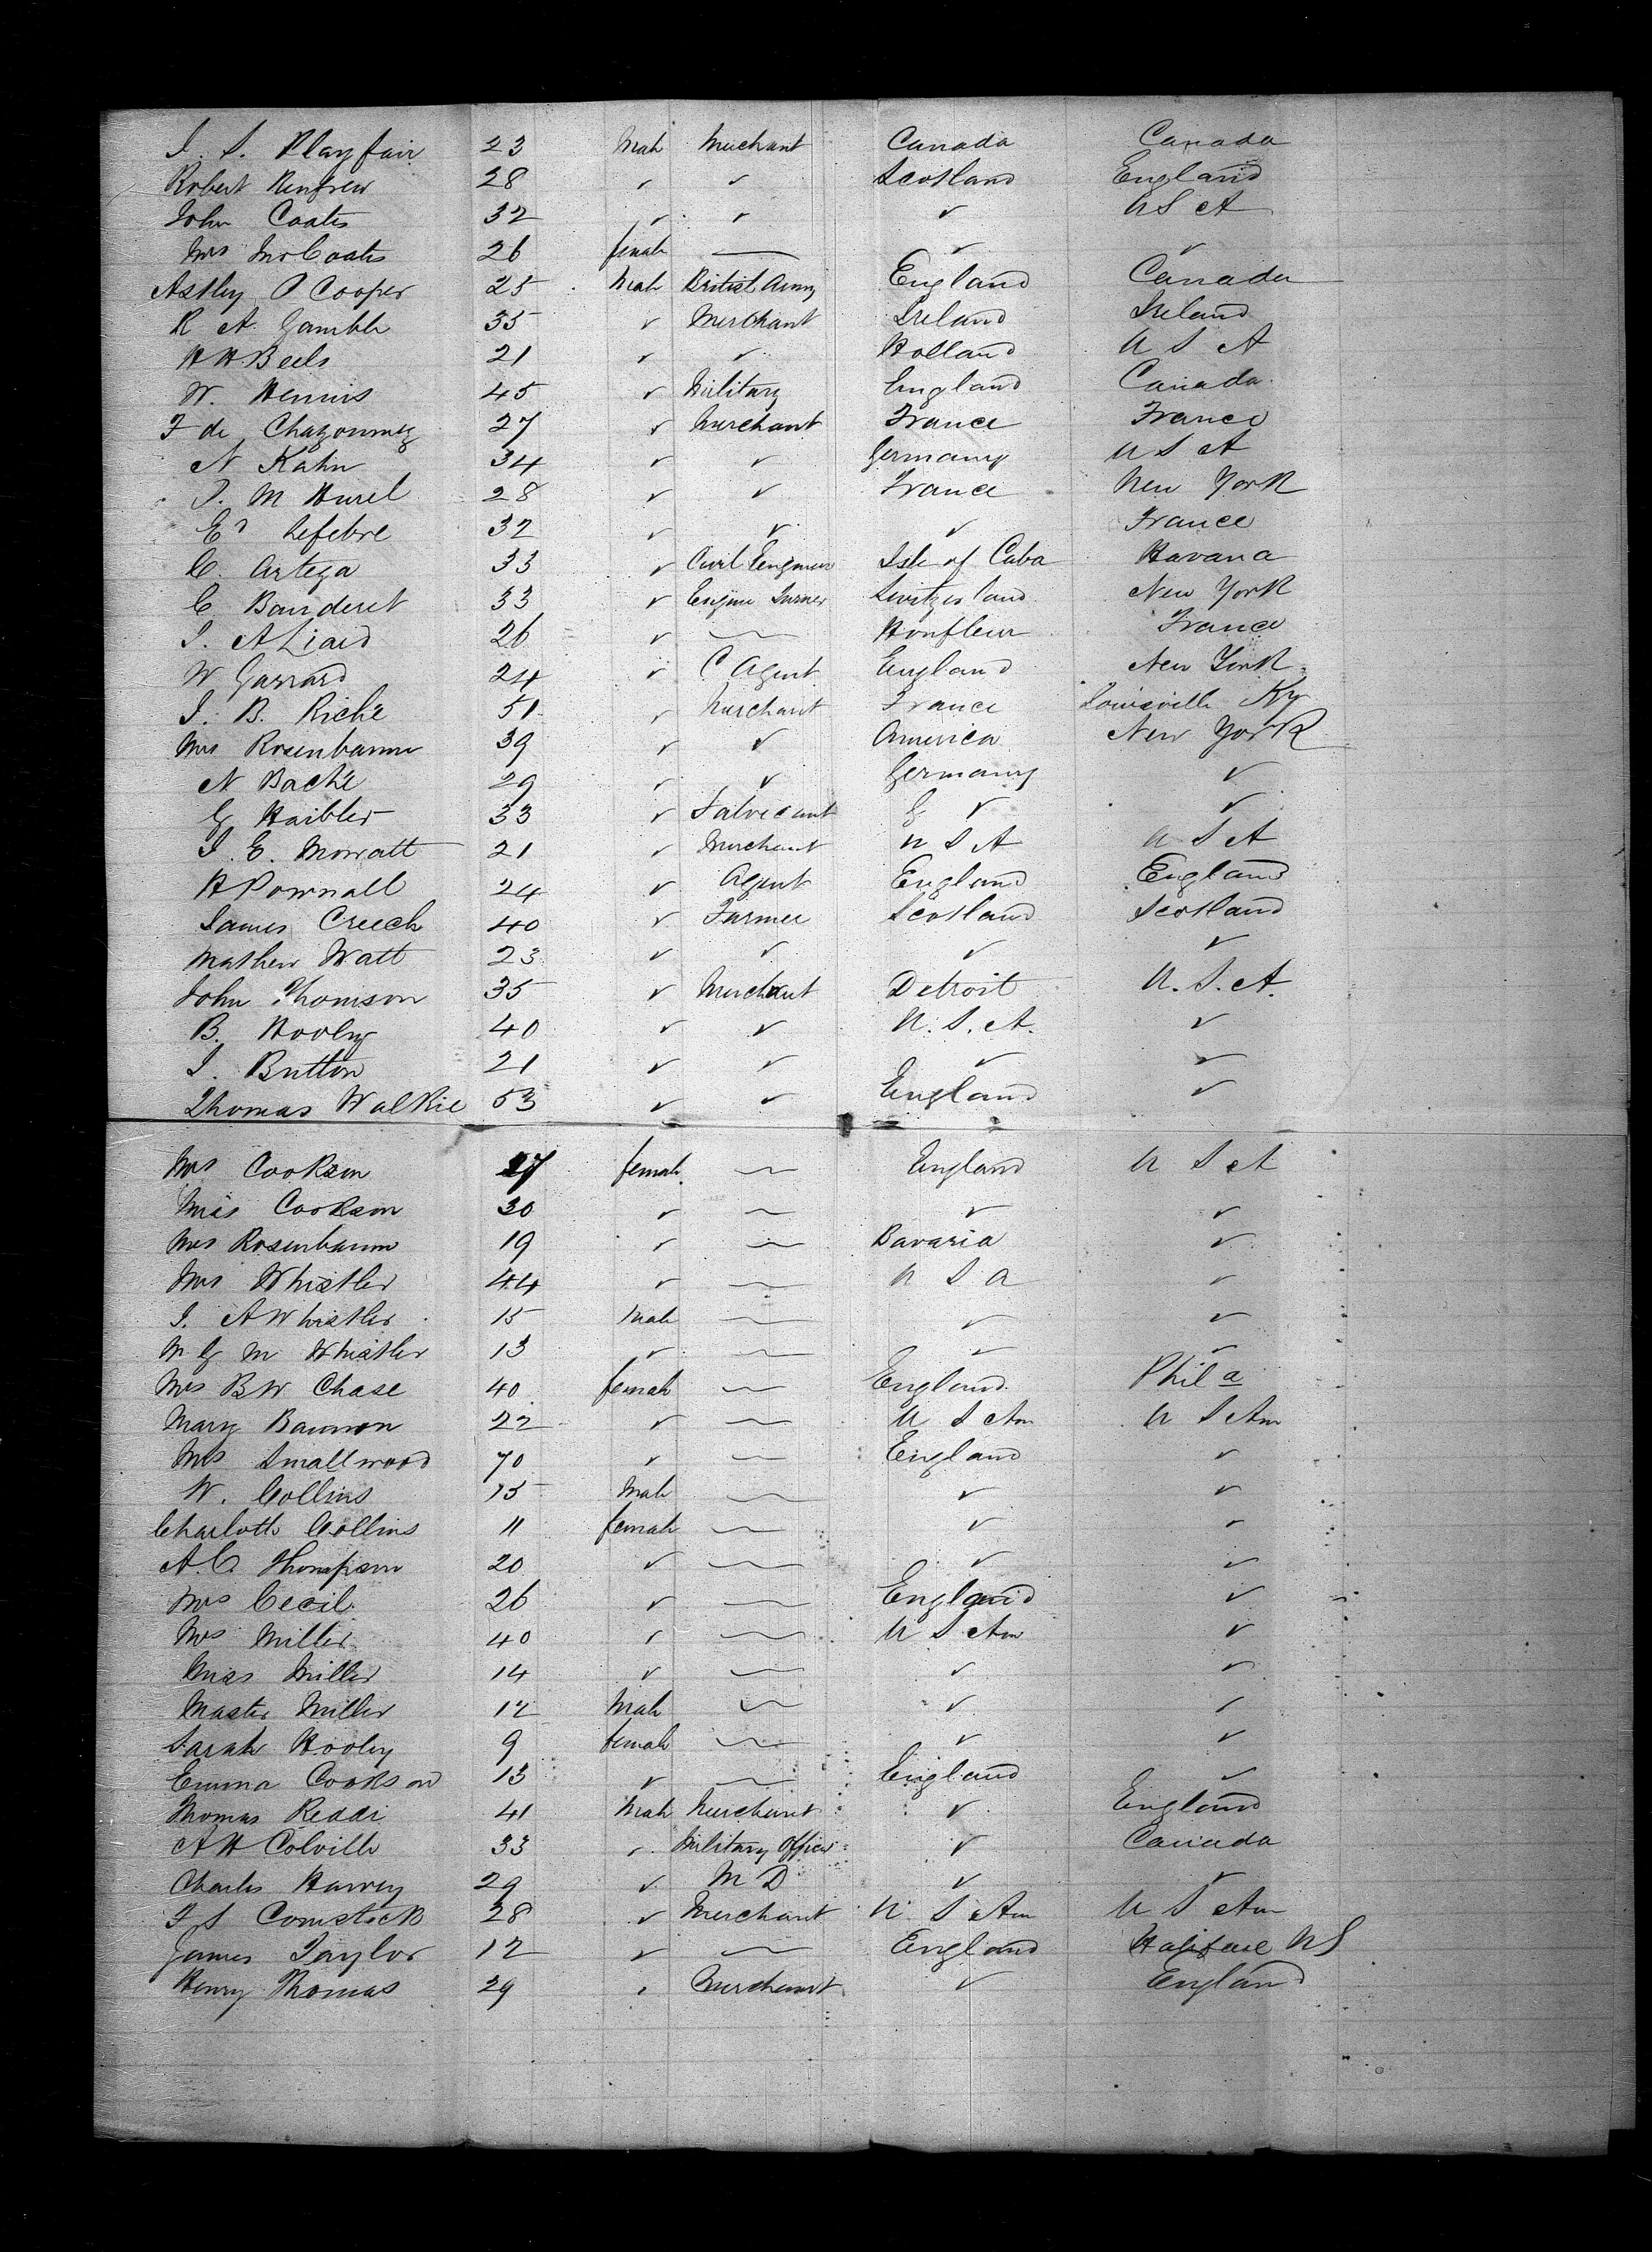 J. S. Playfair 23 Male Merchant Canada Canada
Robert Renfrew 28 ✓ ✓ Scotland England
John Coates 32 ✓ ✓ ✓ U S A
Mrs Jno Coates 26 female — ✓ ✓
Astley P Cooper 25 Male British Army England Canada
R A Gamble 35 ✓ Merchant Ireland Ireland
H H Beels 21 ✓ ✓ Holland U S A
W. Hennis 45 ✓ Military England Canada
F de 27 ✓ Merchant France France
N Kahn 34 ✓ ✓ Germany U S A
J. M Hurel 28 ✓ ✓ France New York
Ed Lefebre 32 ✓ ✓ ✓ France
C. Artega 33 ✓ Civil Engineer Isle of Cuba Havana
C Banderet 33 ✓ Engine Turner Switzerland New York
J. A Liard 26 ✓ — Honfleur France
W Garrard 24 ✓ C Agent England New York
J. B. Riché 51 ✓ Merchant France Louisville Ky
Mrs Rosenbaum 39 ✓ ✓ America New York
N Baché 29 ✓ ✓ Germany ✓
G Haibler 33 ✓ G ✓ ✓
J. E. Mowatt 21 ✓ Merchant U S A U S A
H Pownall 24 ✓ Agent England England
James Creech 40 ✓ Farmer Scotland Scotland
Mathew Watt 23 ✓ ✓ ✓ ✓
John Thomson 35 ✓ Merchant Detroit U. S. A.
B. Hooley 40 ✓ ✓ U. S. A. ✓
J. Button 21 ✓ ✓ ✓ ✓
Thomas Walkie 53 ✓ ✓ England ✓
Mrs Cookson 27 female — England U S A
Miss Cookson 30 ✓ — ✓ ✓
Mrs Rosenbaum 19 ✓ — Bavaria ✓
Mrs Whistler 44 ✓ — U S A ✓
J. A Whistler 15 Male — ✓ ✓
W G M Whistler 13 ✓ — ✓ ✓
Mrs B W Chase 40 female — England Phila
Mary Bannon 22 ✓ — U S Am U S Am
Mrs Smallwood 70 ✓ — England ✓
W. Collins 15 Male — ✓ ✓
Charlotte Collins 11 female — ✓ ✓
A. C. Thompson 20 ✓ — ✓ ✓
Mrs Cecil 26 ✓ — England ✓
Mrs Miller 40 ✓ — U S Am ✓
Miss Miller 14 ✓ — ✓ ✓
Master Miller 12 Male — ✓ ✓
Sarah Hooley 9 female — ✓ ✓
Emma Cookson 13 ✓ — England ✓
Thomas Reddi 41 Male Merchant ✓ England
A H Colville 33 ✓ Military Officer ✓ Canada
Charles Harvey 29 ✓ M D ✓ ✓
F S Comstock 28 ✓ Merchant U S Am U S Am
James Taylor 12 ✓ — England Halifax NS
Henry Thomas 29 ✓ Merchant ✓ England